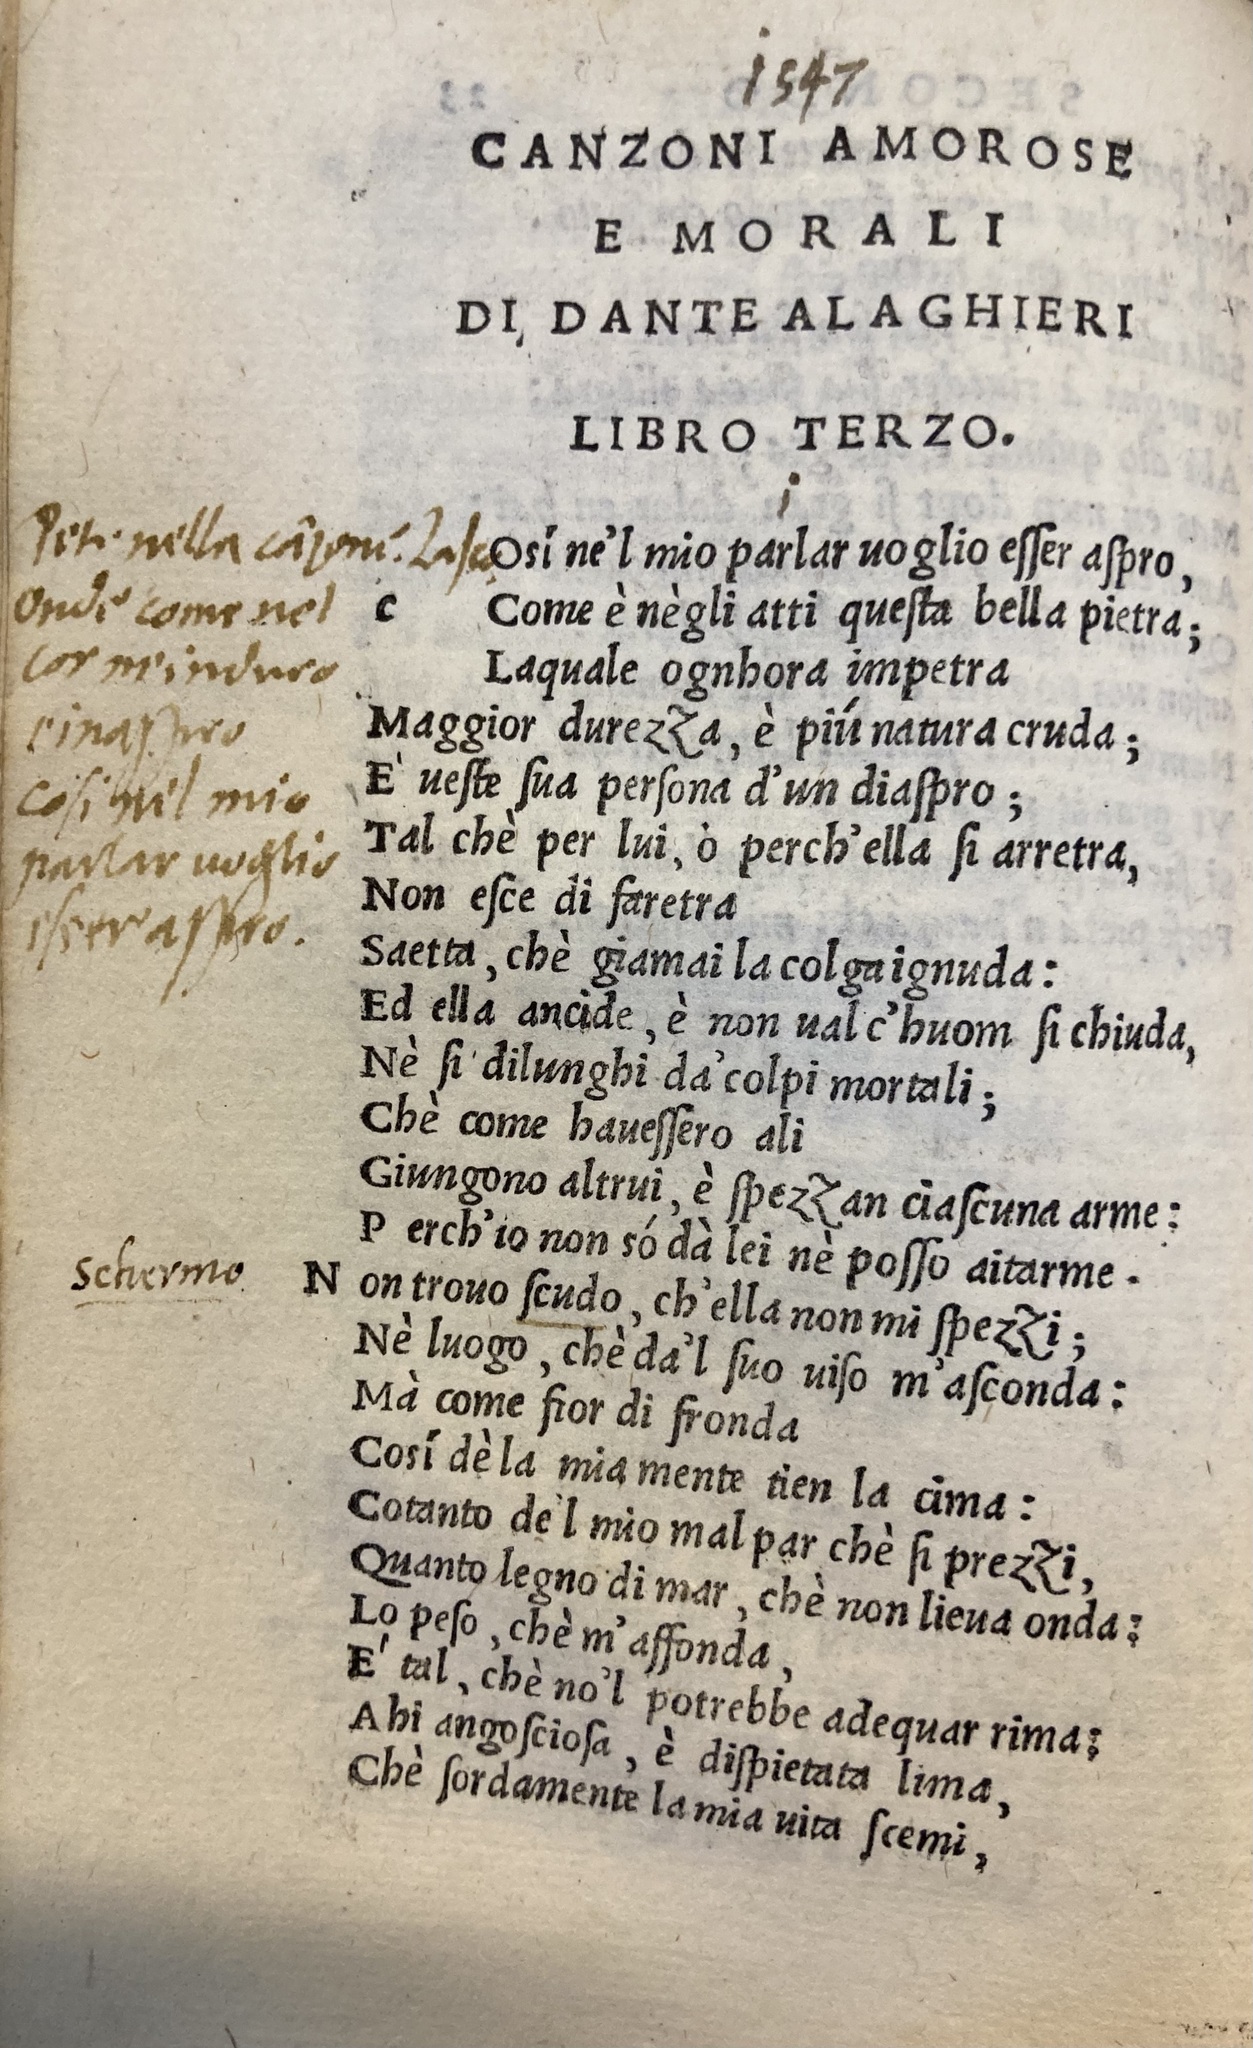 1547
CANZONI AMOROSE
E MORALI
DI DANTE ALAGHIERI
LIBRO TERZO.
i
Petr. nella cãzone. Lasc
Onde come nel
cor m'induro
e inaspro
Cosi nel mio
parlar voglio
esser aspro.
C
Osí ne'l mio parlar uoglio eſſer aſpro,
Come è nègli atti queſta bella pietra;
Laquale ognhora impetra
Maggior durezza, è piú natura cruda;
E' ueſte ſua perſona d'un diaſpro;
Tal chè per lui, ò perch'ella ſi arretra,
Non eſce di faretra
Saetta, chè giamai la colga ignuda:
Ed ella ancide, è non ual c'huom ſi chiuda,
Nè ſi dilunghi da'colpi mortali;
Chè come haueſſero ali
Giungono altrui, è ſpezzan ciaſcuna arme:
P erch'io non só dà lei nè poſſo aitarme.
Schermo
N on trouo ſcudo, ch'ella non mi ſpezzi;
Nè luogo, chè da'l ſuo uiſo m'aſconda:
Mà come fior di fronda
Cosí dè la mia mente tien la cima:
Cotanto de'l mio mal par chè ſi prezzi,
Quanto legno di mar, chè non lieua onda:
Lo peſo, chè m'affonda,
E' tal, chè no'l potrebbe adequar rima:
Ahi angoſcioſa, è diſpietata lima,
Chè ſordamente la mia uita ſcemi,